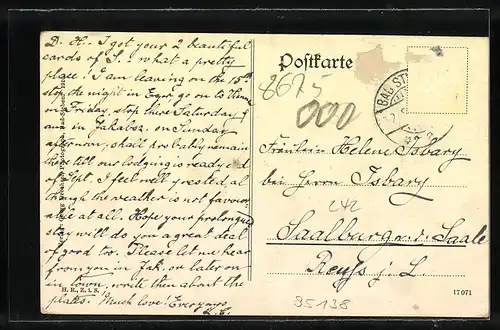 D. H. I got your 2 beautiful
cards of S., what a pretty
place! I am leaving on the 15th
stop the night in Eger, go on to
on Friday stop there Saturday &
am in Jakabsz. on Sunday
afternoon, shall probably remain
there till our lodging is ready end
of Sept. I feel well & rested, al
though the weather is not favour
able at all. Hope your prolonged
stay will do you a great deal
of good too. Please let me hear
from you in Jak. or later on
in town, write then about the
plates. Much love! Ever yours
H. R., Z. i. S.
Postkarte
8675
000
BAD ST
Fräulein Helene Isbary
bei Herrn Isbary
Saalburg a. d. Saale
Reuss j. L.
95138
17071